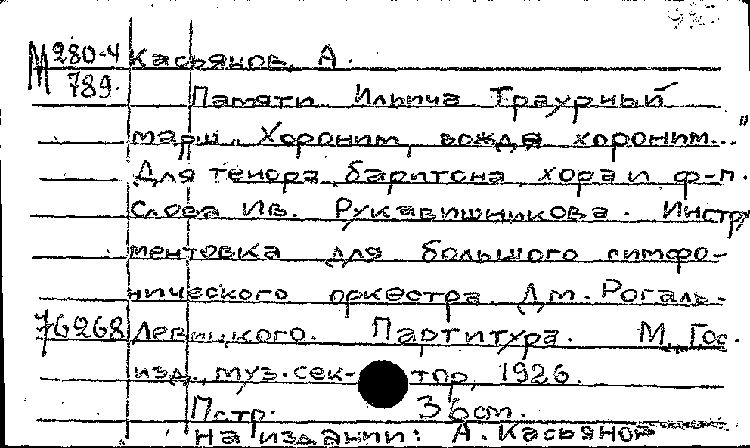 М 280-4 Касьянов, А.
789.
Памяти Ильича Траурный
марш „Хороним, вождя хороним..."
Для тенора, баритона, хора и ф-п.
Слова Ив. Рукавишникова. Инстру
ментовка для большого симфо-
нического оркестра Дм. Рогаль-
76268 Левицкого. Партитура. М., Гос.
изд., муз. сек- тор, 1926.
П стр. 36 cm.
На издании: А. Касьянов